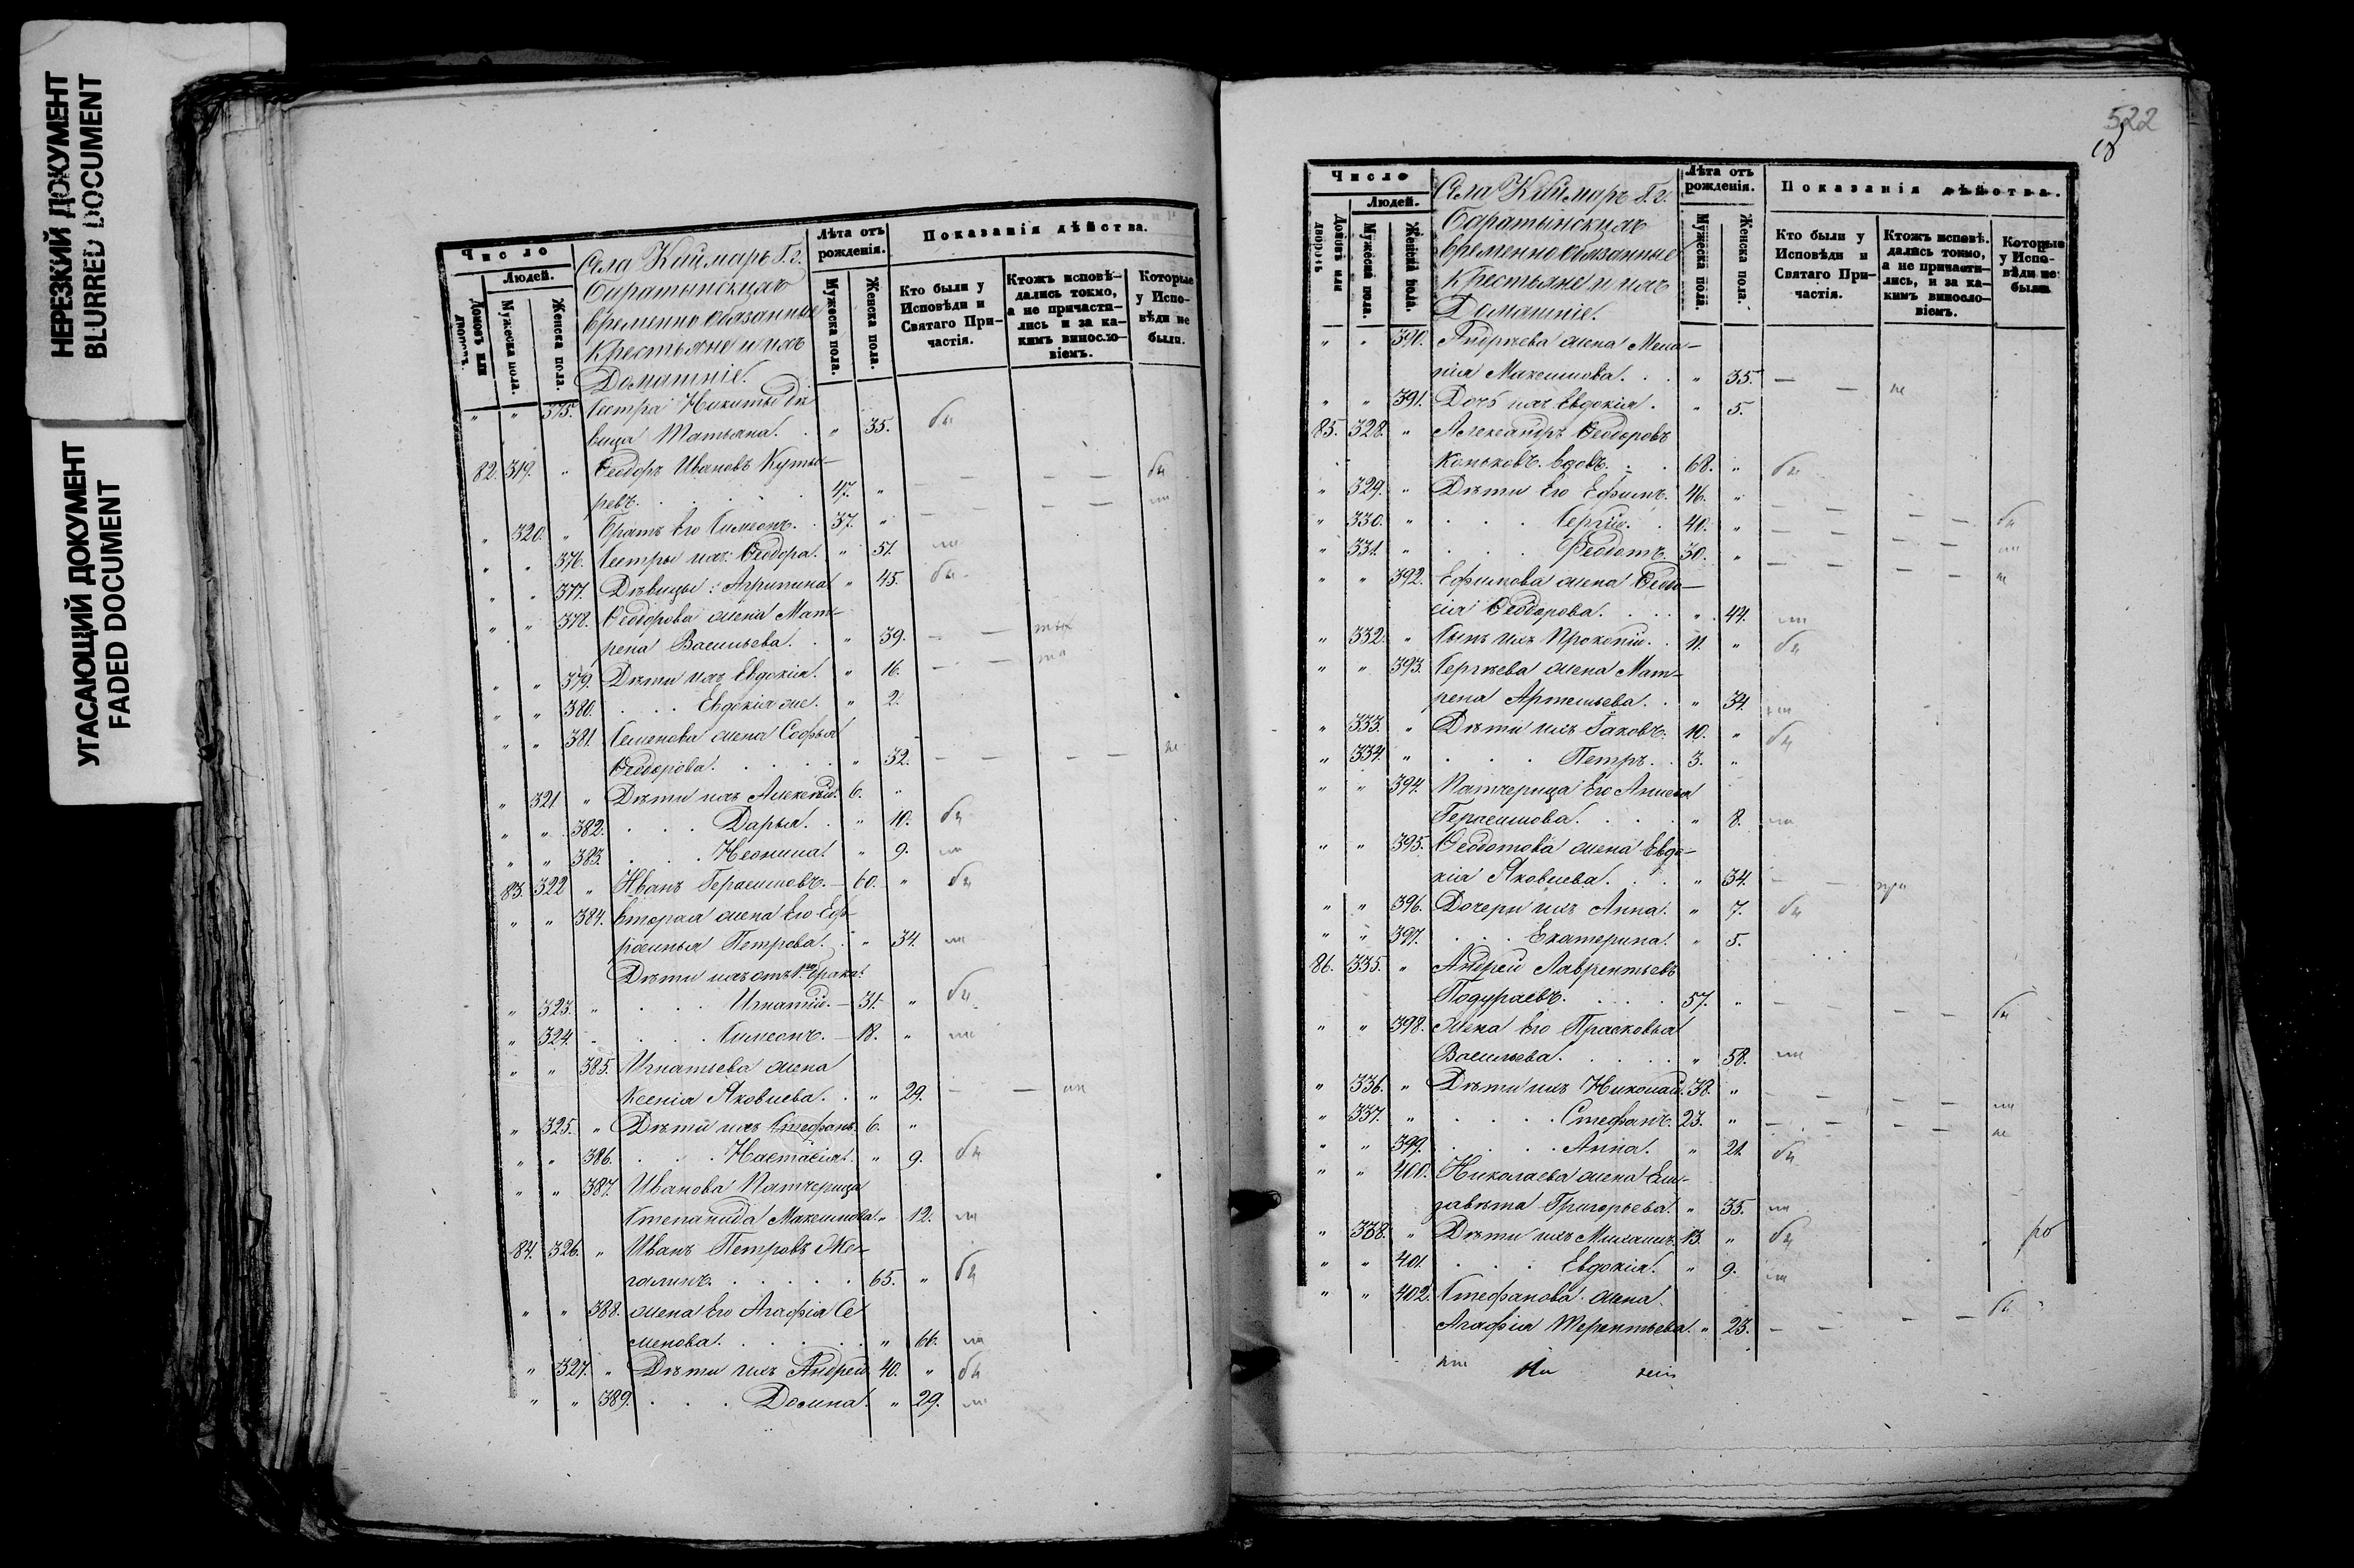 НЕРЕЗКИЙ ДОКУМЕНТ
BLURRED DOCUMENT
УГАСАЮЩИЙ ДОКУМЕНТ
FADED DOCUMENT
Число
Людей.
Домовъ или дворовъ.
Мужеска пола.
Женска пола.
Села Каймаръ Г.г.
Баратынскихъ
временно обязанные
Крестьяне и ихъ
Домашніе.
Лѣта отъ рожденія.
Мужеска пола.
Женска пола.
Показанія дѣйства.
Кто были у Исповѣди и Святаго Причастія.
Ктожъ исповѣдались токмо, а не причастились и за какимъ винословіемъ.
Которые у Исповѣди не были.
" " 375. Сестра Никиты дѣ
вица Татьяна. " 35. бы
82. 319. " Ѳеодоръ Ивановъ Куты-
ревъ. 47. " — — — — бы
" 320. " Братъ Его Симеонъ. 37. " — — — —
" " 376. Сестры ихъ: Ѳеодора. " 51.
" " 377. Дѣвицы: Агрипина " 45. бы
" " 378. Ѳеодорова жена Мат-
рена Васильева. " 39. — —
" " 379. Дѣти ихъ Евдокія. " 16. — —
" " 380. Евдокія же. " 2.
" " 381. Семенова жена Софья
Ѳеодорова. " 32. — — — —
" 321 " Дѣти ихъ Алексѣй. 6. "
" " 382. Дарья. " 10. бы
" " 383. Неонила. " 9.
83. 322 " Иванъ Герасимовъ. 60. " бы
" " 384. Вторая жена Его Еф-
росинья Петрова. " 34.
Дѣти ихъ отъ 1го брака.
" 323. " Игнатій. 31. " бы
" 324. Симеонъ. 18. "
" " 385. Игнатьева жена
Ксенія Яковлева. " 29. — —
" 325. " Дѣти ихъ Стефанъ. 6. "
" " 386. Настасія. " 9. бы
" " 387. Иванова Патчерица
Степанида Максимова. " 12.
84. 326. " Иванъ Петровъ Же-
галинъ. 65. " бы
" " 388. жена Его Агафія Се
менова. " 66.
" 327. " Дѣти ихъ Андрей 40. " бы
" " 389. Домна. " 29.
522
Число
Людей.
Домовъ или дворовъ
Мужеска пола.
Женска пола.
Села Каймаръ Г.г.
Баратынскихъ
временно обязанные
Крестьяне и ихъ
Домашніе.
Лѣта отъ рожденія.
Мужеска пола.
Женска пола.
Показанія дѣйства.
Кто были у Исповѣди и Святаго Причастія.
Ктожъ исповѣдались токмо, а не причастились, и за какимъ винословіемъ.
Которые у Исповѣди не были.
" " 390. Андреева жена Мела-
нія Максимова. " 35. — —
" " 391. Дочь ихъ Евдокія. " 5.
85. 328. " Александръ Ѳеодоровъ
Коньковъ. вдовъ. 68. " бы
" 329. " Дѣти Его Ефимъ. 46. " — — — — бы
" 330. " Сергій. 40. " — — — —
" 331. " Ѳеодотъ. 30. " — — — —
" " 392. Ефимова жена Ѳеодо-
сія Ѳеодорова. " 44.
" 332. " Сынъ ихъ Прокопій. 11. " бы
" " 393. Сергѣева жена Мат-
рена Артемьева. " 34.
" 333. " Дѣти ихъ Іаковъ. 10. " бы
" 334. " Петръ. 3. "
" " 394. Патчерица Его Анисья
Герасимова. " 8.
" " 395. Ѳеодотова жена Евдо-
кія Яковлева. " 34. — —
" " 396. Дочери ихъ Анна. " 7. бы
" " 397. Екатерина. " 5.
86. 335. " Андрей Лаврентьевъ
Подураевъ. 57. " — — — — бы
" " 398. Жена Его Прасковья
Васильева. " 58.
" 336. " Дѣти ихъ Николай. 38. " — — — —
" 337. " Стефанъ. 23. " — — — —
" " 399. Анна. " 21. бы
" " 400. Николаева жена Ели-
завѣта Григорьева. " 35.
" 338. " Дѣти ихъ Михаилъ. 13. " бы
" " 401. Евдокія. " 9.
" " 402. Стефанова жена
Агафія Терентьева. " 23. — — — — бы